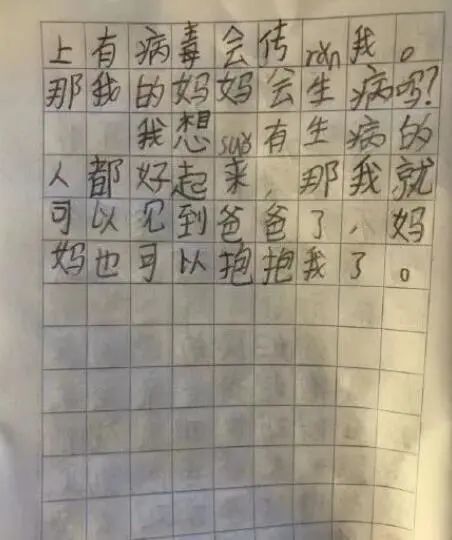 上有病毒会传rǎn我。
那我的妈妈会生病吗?
我想suǒ有生病的
人都好起来,那我就
可以见到爸爸了,妈
妈也可以抱抱我了。